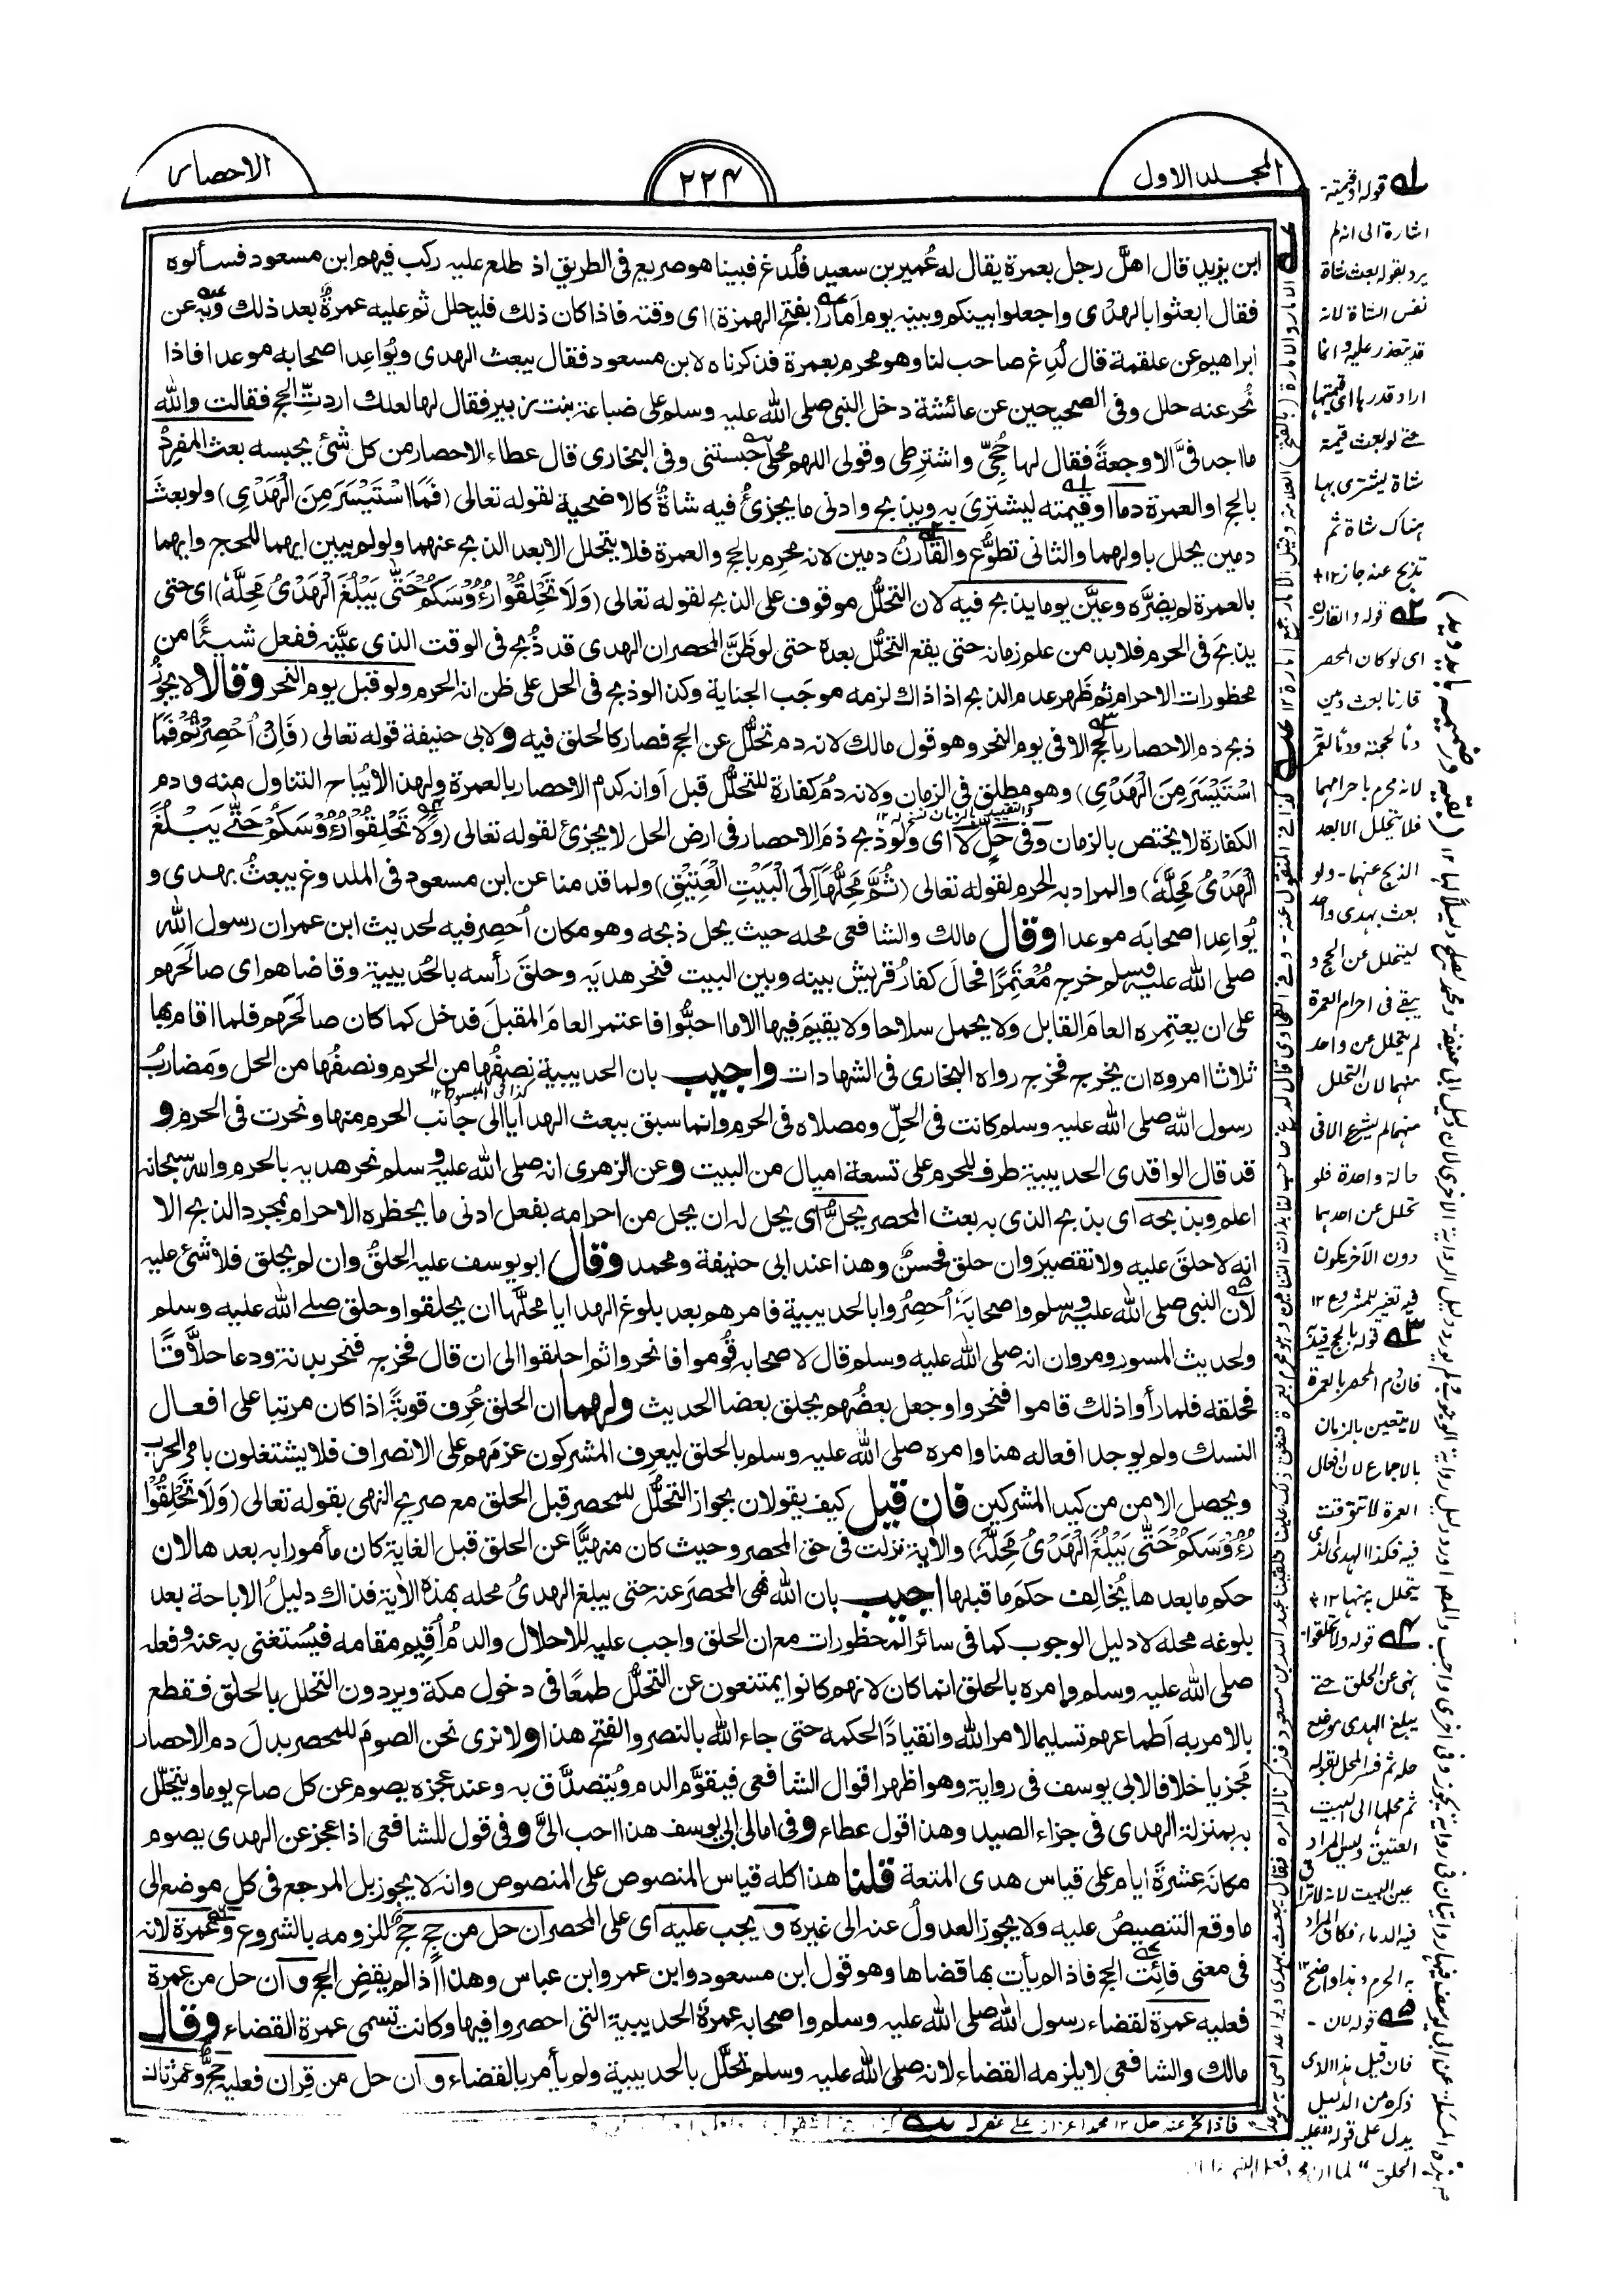 المجلد الاول
٢٢٤
الاحصار
ابن يزيد قال اهلَّ رجل بعمرة يقال له عُمير بن سعيد فلُدغ فبينا هو صريع فى الطريق اذ طلع عليه ركب فيهم ابن مسعود فسألوه
فقال ابعثوا بالهدى واجعلوا بينكم وبينه يوم اَمار (بفتح الهمزة) اى وقته فاذا كان ذلك فليحلل ثم عليه عمرةٌ بعد ذلك وبه عن
ابراهيم عن علقمة قال لُدِغ صاحب لنا وهو محرم بعمرة فذكرناه لابن مسعود فقال يبعث الهدى ويُواعِد اصحابه موعدا فاذا
نُحر عنه حلل وفى الصحيحين عن عائشة دخل النبى صلى الله عليه وسلم على ضباعة بنت زبير فقال لها لعلك اردتِّ الحج فقالت والله
ما اجد فىَّ الا وجعةً فقال لها حُجِّى واشترطى وقولى اللهم محلى حبستنى وفى البخارى قال عطاء الاحصار من كل شئ يحبسه بعث المفرِدُ
بالحج او العمرة دما او قيمته ليشترى به ويذبح وادنى ما يجزئ فيه شاةٌ كالاضحية لقوله تعالى (فَمَا اسْتَيْسَرَ مِنَ الْهَدْىِ) ولو بعث
دمين يحلل باولهما والثانى تطوُّع والقارنُ دمين لانه محرم بالحج والعمرة فلا يتحلل الا بعد الذبح عنهما ولو لم يبين ايهما للحج وايهما
بالعمرة لم يضرَّه وعيَّن يوما يذبح فيه لان التحلُّل موقوف على الذبح لقوله تعالى (وَلَا تَحْلِقُوْا رُءُوْسَكُمْ حَتّٰى يَبْلُغَ الْهَدْىُ مَحِلَّهٗ) اى حتى
يذبحَ فى الحرم فلابد من علم زمانه حتى يقع التحلُّل بعده حتى لو ظَنَّ المحصر ان الهدى قد ذُبح فى الوقت الذى عيَّنه ففعل شيئًا من
محظورات الاحرام ثم ظهر عدم الذبح اذ ذاك لزمه موجَب الجناية وكذا لو ذبح فى الحل على ظن انه الحرم ولو قبل يوم النحر وقالا لا يجوز
ذبح دم الاحصار بالحج الا فى يوم النحر وهو قول مالك لانه دم تحلُّل عن الحج فصار كالحلق فيه ولابى حنيفة قوله تعالى (فَاِنْ اُحْصِرْتُمْ فَمَا
اسْتَيْسَرَ مِنَ الْهَدْىِ) وهو مطلق فى الزمان ولانه دمُ كفارة للتحلُّل قبل اَوانه كدم الاحصار بالعمرة ولهذا لايُباح التناول منه ودم
الكفارة لا يختص بالزمان وفى حلٍ لا اى ولو ذبح دم الاحصار فى ارض الحل لا يجزئ لقوله تعالى (وَلَا تَحْلِقُوْا رُءُوْسَكُمْ حَتّٰى يَبْلُغَ
الْهَدْىُ مَحِلَّهٗ) والمراد به الحرم لقوله تعالى (ثُمَّ مَحِلُّهَا اِلَى الْبَيْتِ الْعَتِيْقِ) ولما قدمنا عن ابن مسعود فى الملدوغ يبعثُ بهدى و
يُواعد اصحابَه موعدا وقال مالك والشافعى محله حيث يحل ذبحه وهو مكان اُحصِر فيه لحديث ابن عمر ان رسول الله
صلى الله عليه وسلم خرج مُعْتَمِرًا فحالَ كفارُ قريش بينه وبين البيت فنحر هديَه وحلقَ رأسه بالحُديبية وقاضاهم اى صالَحَهم
على ان يعتمِر العامَ القابل ولا يحمل سلاحا ولا يقيمَ فيها الا ما احبُّوا فاعتمر العامَ المقبل فدخل كما كان صالَحَهم فلما اقام بها
ثلاثا امروه ان يخرج فخرج رواه البخارى فى الشهادات واجيب بان الحديبية نصفُها من الحرم ونصفُها من الحل ومَضاربُ
رسول الله صلى الله عليه وسلم كانت فى الحِلّ ومصلاه فى الحرم وانما سبق ببعث الهدايا الى جانب الحرم منها ونحرت فى الحرم و
قد قال الواقدى الحديبية طرف للحرم على تسعة اميال من البيت وعن الزهرى انه صلى الله عليه وسلم نحر هديه بالحرم والله سبحانه
اعلم وبذبحه اى بذبح الذى به بعث المحصر يحلُّ اى يحل له ان يحل من احرامه بفعل ادنى ما يحظره الاحرام بمجرد الذبح الا
انه لا حلقَ عليه ولا تقصيرَ وان حلق فحسنٌ وهذا عند ابى حنيفة ومحمد وقال ابو يوسف عليه الحلقُ وان لم يحلق فلا شئ عليه
لان النبى صلى الله عليه وسلم واصحابَه اُحصِرُوا بالحديبية فامرهم بعد بلوغ الهدايا محلَّها ان يحلقوا وحلق صلى الله عليه وسلم
ولحديث المسور ومروان انه صلى الله عليه وسلم قال لاصحابه قُوموا فانحروا ثم احلقوا الى ان قال فخرج فنحر بدنته ودعا حلاَّقا
فحلقه فلما رأوا ذلك قاموا فنحروا وجعل بعضُهم يحلق بعضا الحديث ولهما ان الحلق عُرِف قربةً اذا كان مرتبا على افعال
النسك ولم يوجد افعاله هنا وامره صلى الله عليه وسلم بالحلق ليعرِف المشركون عزمَهم على الانصراف فلا يشتغلون بامر الحرب
ويحصل الامن من كيد المشركين فان قيل كيف يقولان بجواز التحلُّل للمحصر قبل الحلق مع صريح النهى بقوله تعالى (وَلَا تَحْلِقُوْا
رُءُوْسَكُمْ حَتّٰى يَبْلُغَ الْهَدْىُ مَحِلَّهٗ) والاٰية نزلت فى حق المحصر وحيث كان منهيًّا عن الحلق قبل الغاية كان مأمورا به بعدها لان
حكم ما بعدها يُخالِف حكمَ ما قبلها اجيب بان الله نهى المحصَر عنه حتى يبلغ الهدىُ محله بهذه الاٰية فذاك دليلُ الاباحة بعد
بلوغه محله لا دليل الوجوب كما فى سائر المحظورات مع ان الحلق واجب عليه للاحلال والدمُ اُقِيم مقامه فيُستغنى به عنه وفعله
صلى الله عليه وسلم وامره بالحلق انما كان لانهم كانوا يمتنعون عن التحلُّل طمعًا فى دخول مكة ويردون التحلل بالحلق فقطع
بالامر به اَطماعهم تسليما لامر الله وانقيادًا لحكمه حتى جاء الله بالنصر والفتح هذا ولا نرى نحن الصومَ للمحصر بدلَ دم الاحصار
مجزيا خلافا لابى يوسف فى رواية وهو اظهر اقوال الشافعى فيقوَّم الدم ويُتصدَّق به وعند عجزه يصوم عن كل صاع يوما ويتحلّل
به بمنزلة الهدى فى جزاء الصيد وهذا قول عطاء وفى امالى ابى يوسف هذا احب الىَّ وفى قول للشافعى اذا عجز عن الهدى يصوم
مكانَه عشرةَ ايام على قياس هدى المتعة قلنا هذا كله قياس المنصوص على المنصوص وانه لا يجوز بل المرجع فى كل موضع الى
ما وقع التنصيصُ عليه ولا يجوز العدولُ عنه الى غيره و يجب عليه اى على المحصر ان حل من حج حجٌّ للزومه بالشروع وعمرة لانه
فى معنى فائِت الحج فاذا لم يأت بها قضاها وهو قول ابن مسعود وابن عمر وابن عباس وهذا اذا لم يقضِ الحج و ان حل من عمرة
فعليه عمرة لقضاء رسول الله صلى الله عليه وسلم واصحابه عمرةَ الحديبية التى احصروا فيها وكانت تسمى عمرة القضاء وقال
مالك والشافعى لا يلزمه القضاء لانه صلى الله عليه وسلم تحلَّل بالحديبية ولم يأمر بالقضاء و ان حل من قِران فعليه حجٌّ وعمرتان
له قوله او قيمته-
اشارة الى انه لم
يرد بقوله بعث شاة
نفس الشاة لانه
قد يتعذر عليه وانما
اراد قدرها اى قيمتها
حتى لو بعث قيمة
شاة يشترى بها
هناك شاة ثم
تذبح عنه جاز ١٢
قوله والقارن-
اى لو كان المحصر
قارنا بعث دمين
دمًا لحجته ودمًا لعمرته
لانه محرم باحرامهما
فلا يتحلل الا بعد
الذبح عنهما- ولو
بعث بهدى واحد
ليتحلل عن الحج و
يبقى فى احرام العمرة
لم يتحلل عن واحد
منهما لان التحلل
منهما لم يشرع الا فى
حالة واحدة فلو
تحلل عن احدهما
دون الآخر يكون
فيه تغيير للمشروع ١٢
قوله بالحج قيد
فان دم المحصر بالعمرة
لا يتعين بالزمان
بالاجماع لان افعال
العمرة لا تتوقت
فيه فكذا الهدى الذى
يتحلل به منها ١٢
قوله ولا تحلقوا-
نهى عن الحلق حتى
يبلغ الهدى موضع
حله ثم فسر المحل بقوله
ثم محلها الى البيت
العتيق وليس المراد
عين البيت لانه لا تراق
فيه الدماء فكان المراد
به الحرم وهذا واضح ١٢
قوله لان -
فان قيل هذا الذى
ذكره من الدليل
يدل على قوله "فعليه
الحلق"